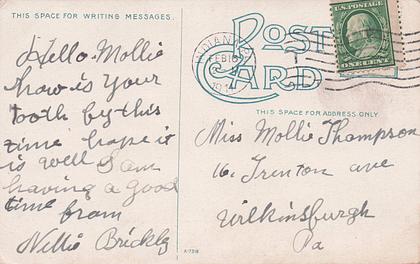 THIS SPACE FOR WRITING MESSAGES.
Hello Mollie
how is your
tooth by this
time hope it
is well I am
having a good
time from
Nellie Brickly
POST
CARD
FEB
U.S. POSTAGE
ONE CENT
THIS SPACE FOR ADDRESS ONLY
Miss Mollie Thompson
16. Trenton ave
Wilkinsburgh
Pa